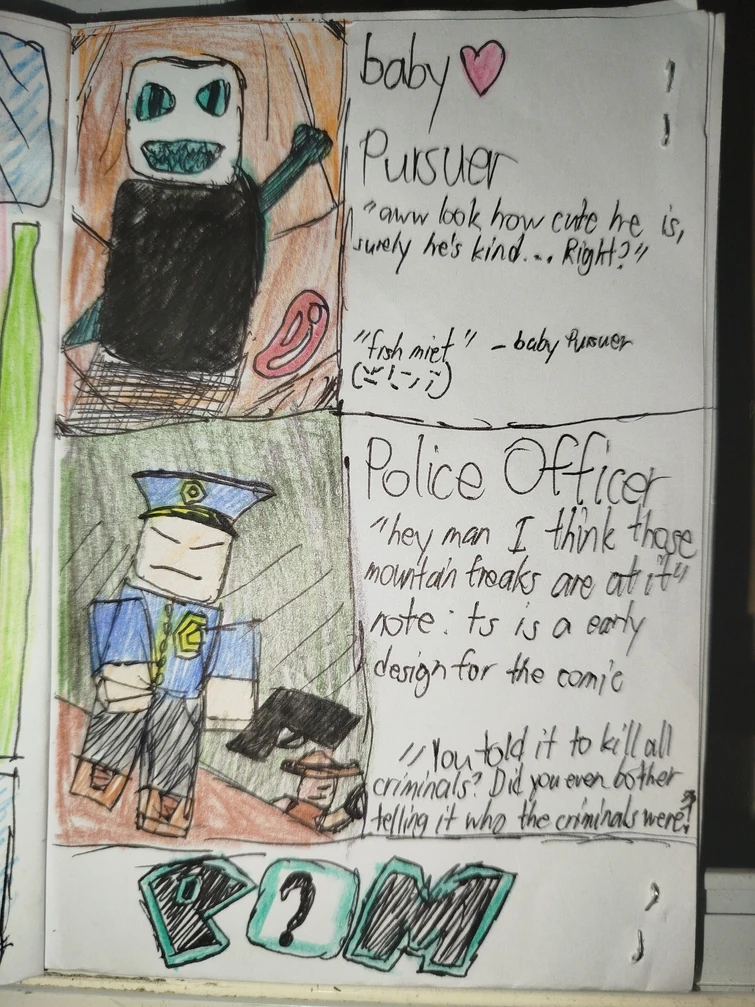 baby
Pursuer
"aww look how cute he is,
surely he's kind... Right?"
"fish miet" - baby Pursuer
Police Officer
"hey man I think those
mountain freaks are at it"
note: ts is a early
design for the comic
"You told it to kill all
criminals? Did you even bother
telling it who the criminals were?"
P?M